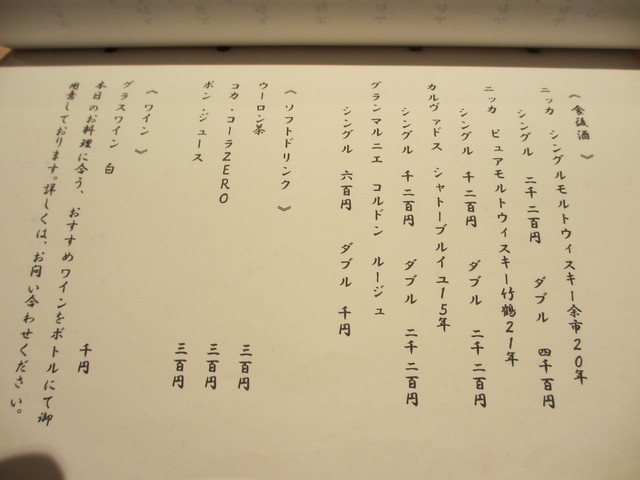 《 食後酒 》
ニッカ シングルモルトウィスキー余市20年
シングル 二千二百円 ダブル 四千百円
ニッカ ピュアモルトウィスキー竹鶴21年
シングル 千二百円 ダブル 二千二百円
カルヴァドス シャトーブルイユ15年
シングル 千二百円 ダブル 二千二百円
グランマルニエ コルドン ルージュ
シングル 六百円 ダブル 千円
《 ソフトドリンク 》
ウーロン茶 三百円
コカ・コーラZERO 三百円
ポン・ジュース 三百円
《 ワイン 》
グラスワイン 白 千円
本日のお料理に合う、おすすめワインをボトルにて御
用意しております。詳しくは、お問い合わせください。